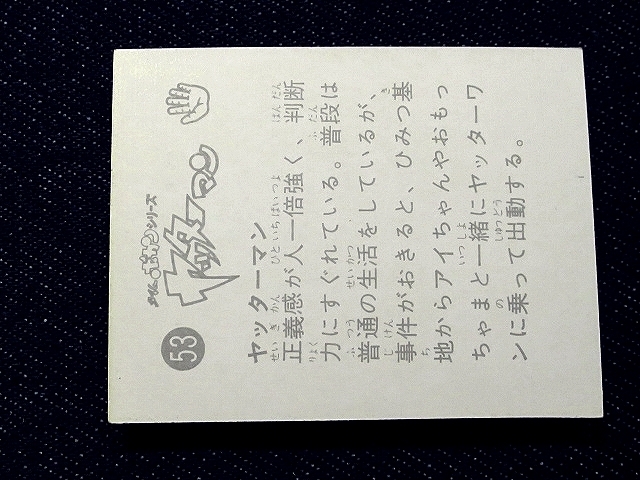 53
タイムボカンシリーズ
ヤッターマン
ヤッターマン
正義感が人一倍強く、判断
力にすぐれている。普段は
普通の生活をしているが、
事件がおきると、ひみつ基
地からアイちゃんやおもっ
ちゃまと一緒にヤッターワ
ンに乗って出動する。